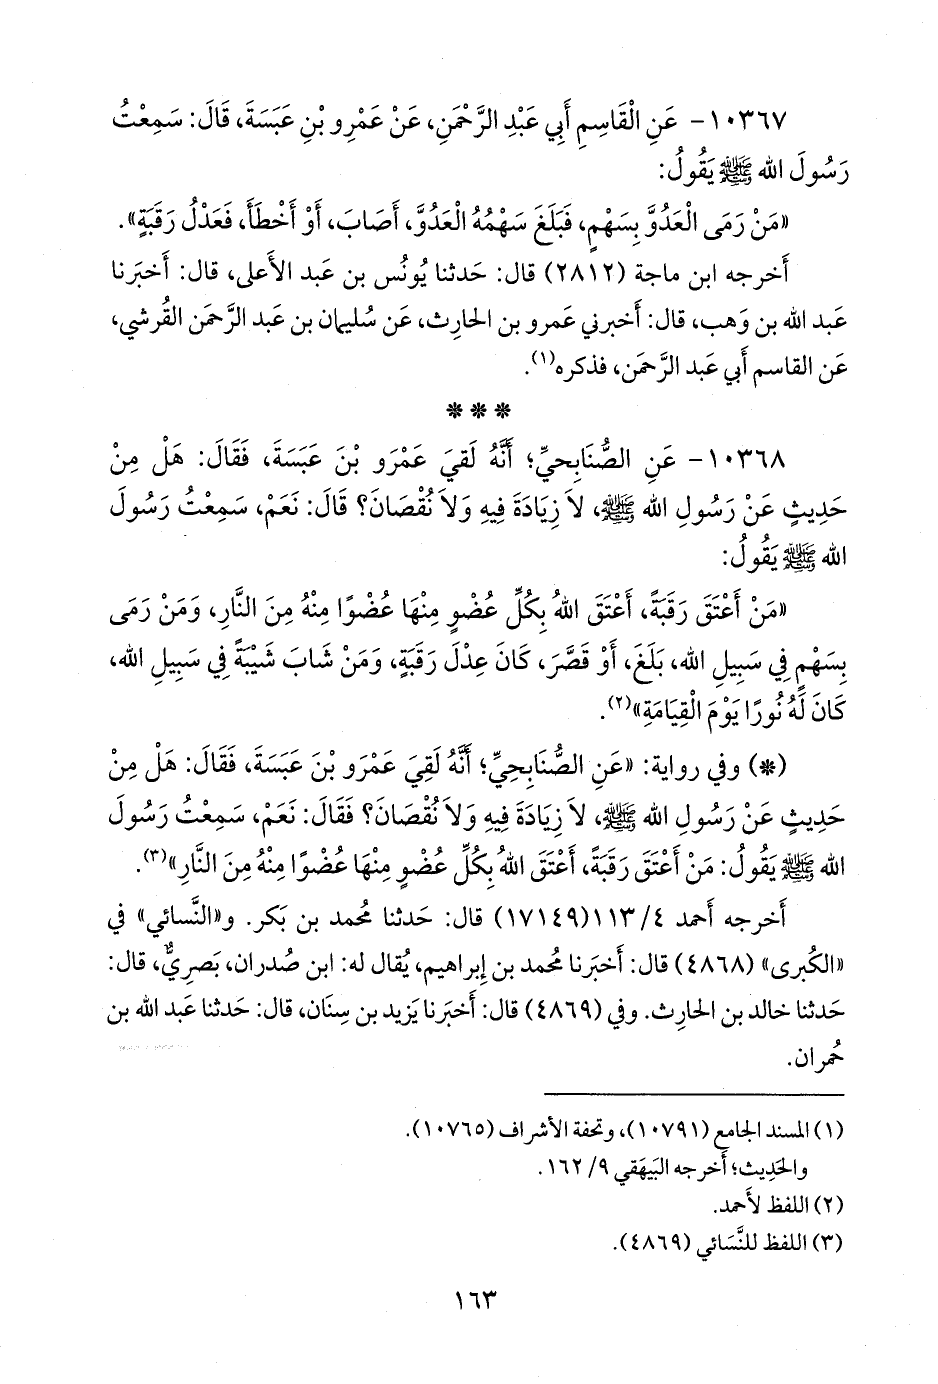 ١٠٣٦٧- عَنِ الْقَاسِمِ أَبِي عَبْدِ الرَّحْمَنِ، عَنْ عَمْرِو بْنِ عَبَسَةَ، قَالَ: سَمِعْتُ
رَسُولَ الله ﷺ يَقُولُ:
«مَنْ رَمَى الْعَدُوَّ بِسَهْمٍ، فَبَلَغَ سَهْمُهُ الْعَدُوَّ، أَصَابَ، أَوْ أَخْطَأَ، فَعَدْلُ رَقَبَةٍ».
أَخرجه ابن ماجة (٢٨١٢) قال: حَدثنا يُونُس بن عَبد الأَعلى، قال: أَخبَرنا
عَبد الله بن وَهب، قال: أَخبرني عَمرو بن الحارِث، عَن سُليمان بن عَبد الرَّحمَن القُرشي،
عَن القاسم أَبي عَبد الرَّحمَن، فذكره(١).
***
١٠٣٦٨- عَنِ الصُّنَابِحيِّ؛ أَنَّهُ لَقِيَ عَمْرَو بْنَ عَبَسَةَ، فَقَالَ: هَلْ مِنْ
حَدِيثٍ عَنْ رَسُولِ الله ﷺ، لاَ زِيَادَةَ فِيهِ وَلاَ نُقْصَانَ؟ قَالَ: نَعَمْ، سَمِعْتُ رَسُولَ
الله ﷺ يَقُولُ:
«مَنْ أَعْتَقَ رَقَبَةً، أَعْتَقَ اللهُ بِكُلِّ عُضْوٍ مِنْهَا عُضْوًا مِنْهُ مِنَ النَّارِ، وَمَنْ رَمَى
بِسَهْمٍ فِي سَبِيلِ الله، بَلَغَ، أَوْ قَصَّرَ، كَانَ عِدْلَ رَقَبَةٍ، وَمَنْ شَابَ شَيْبَةً فِي سَبِيلِ الله،
كَانَ لَهُ نُورًا يَوْمَ الْقِيَامَةِ»(٢).
(*) وفي رواية: «عَنِ الصُّنَابِحِيِّ؛ أَنَّهُ لَقِيَ عَمْرَو بْنَ عَبَسَةَ، فَقَالَ: هَلْ مِنْ
حَدِيثٍ عَنْ رَسُولِ الله ﷺ، لاَ زِيَادَةَ فِيهِ وَلاَ نُقْصَانَ؟ فَقَالَ: نَعَمْ، سَمِعْتُ رَسُولَ
الله ﷺ يَقُولُ: مَنْ أَعْتَقَ رَقَبَةً، أَعْتَقَ اللهُ بِكُلِّ عُضْوٍ مِنْهَا عُضْوًا مِنْهُ مِنَ النَّارِ»(٣).
أَخرجه أَحمد ٤/١١٣(١٧١٤٩) قال: حَدثنا مُحمد بن بَكر. و«النَّسائي» في
«الكُبرى» (٤٨٦٨) قال: أَخبَرنا مُحمد بن إِبراهيم، يُقال له: ابن صُدران، بَصرِيٌّ، قال:
حَدثنا خالد بن الحارِث. وفي (٤٨٦٩) قال: أَخبَرنا يَزيد بن سِنَان، قال: حَدثنا عَبد الله بن
حُمران.
(١) المسند الجامع (١٠٧٩١)، وتحفة الأشراف (١٠٧٦٥).
والحَدِيث؛ أَخرجه البَيهَقي ٩/ ١٦٢.
(٢) اللفظ لأَحمد.
(٣) اللفظ للنَّسَائي (٤٨٦٩).
١٦٣